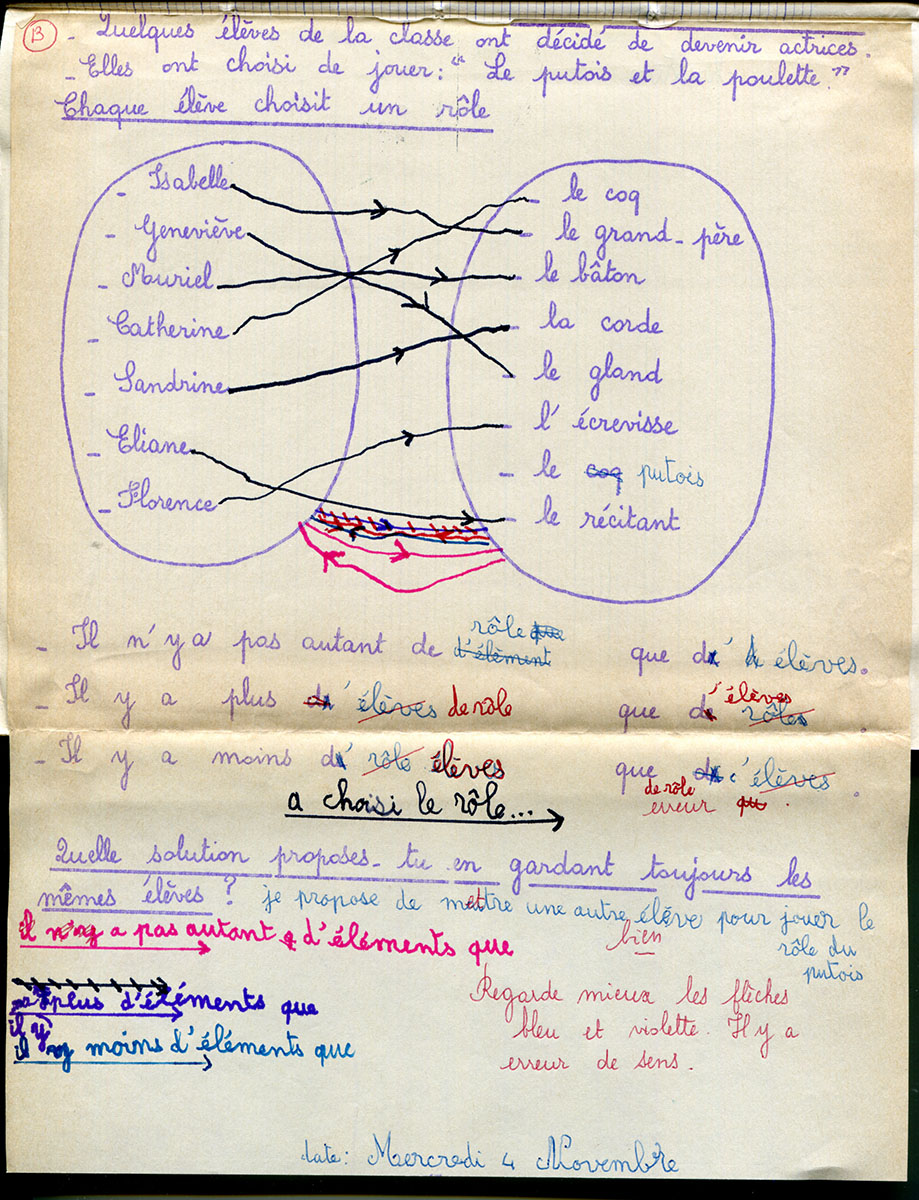 B - Quelques élèves de la classe ont décidé de devenir actrices.
- Elles ont choisi de jouer : " Le putois et la poulette."
Chaque élève choisit un rôle
- Isabelle
- Geneviève
- Muriel
- Catherine
- Sandrine
- Eliane
- Florence
- le coq
- le grand-père
- le bâton
- la corde
- le gland
- l'écrevisse
- le coq putois
- le récitant
- Il n'y a pas autant de d'élément rôle que d' élèves.
- Il y a plus d' élèves de rôle que d' rôles élèves.
- Il y a moins d' rôle élèves que d' élèves.
de rôle
erreur
a choisi le rôle...
Quelle solution proposes-tu en gardant toujours les
mêmes élèves ? je propose de mettre une autre élève pour jouer le
rôle du
putois
bien
il n'y a pas autant d'éléments que
plus d'éléments que
il y
il y moins d'éléments que
Regarde mieux les flèches
bleu et violette. Il y a
erreur de sens.
date: Mercredi 4 Novembre